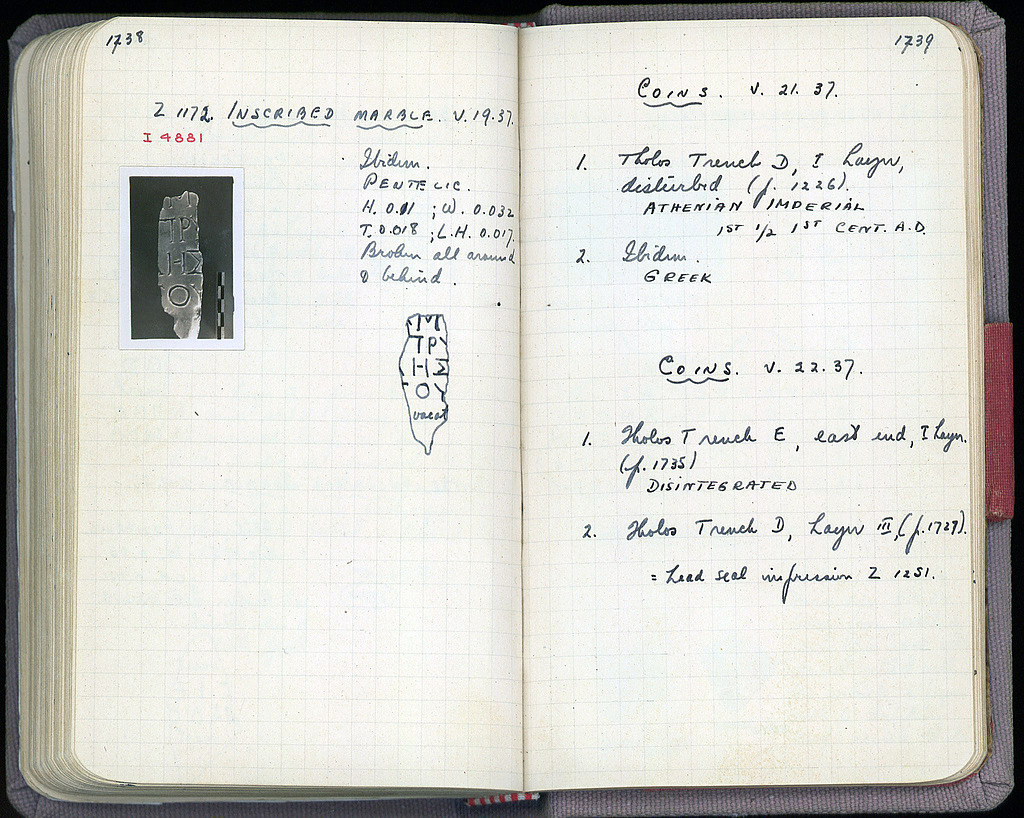 1738
Z 1172. INSCRIBED MARBLE. V.19.37.
I 4881
Ibidem.
PENTELIC.
H. 0.11 ; W. 0.032
T. 0.018 ; L.H. 0.017.
Broken all around
& behind.
Μ
ΤΡ
ΗΣ
Ο
Μ
ΤΡΥ
ΗΣ
Ο
vacat
1739
COINS. V. 21. 37.
1. Tholos Trench D, I Layer,
disturbed (p. 1226).
ATHENIAN IMPERIAL
1ST 1/2 1ST CENT. A.D.
2. Ibidem.
GREEK
COINS. V. 22. 37.
1. Tholos Trench E, east end, I Layer.
(p. 1735)
DISINTEGRATED
2. Tholos Trench D, Layer III, (p. 1729).
= Lead seal impression Z 1251.